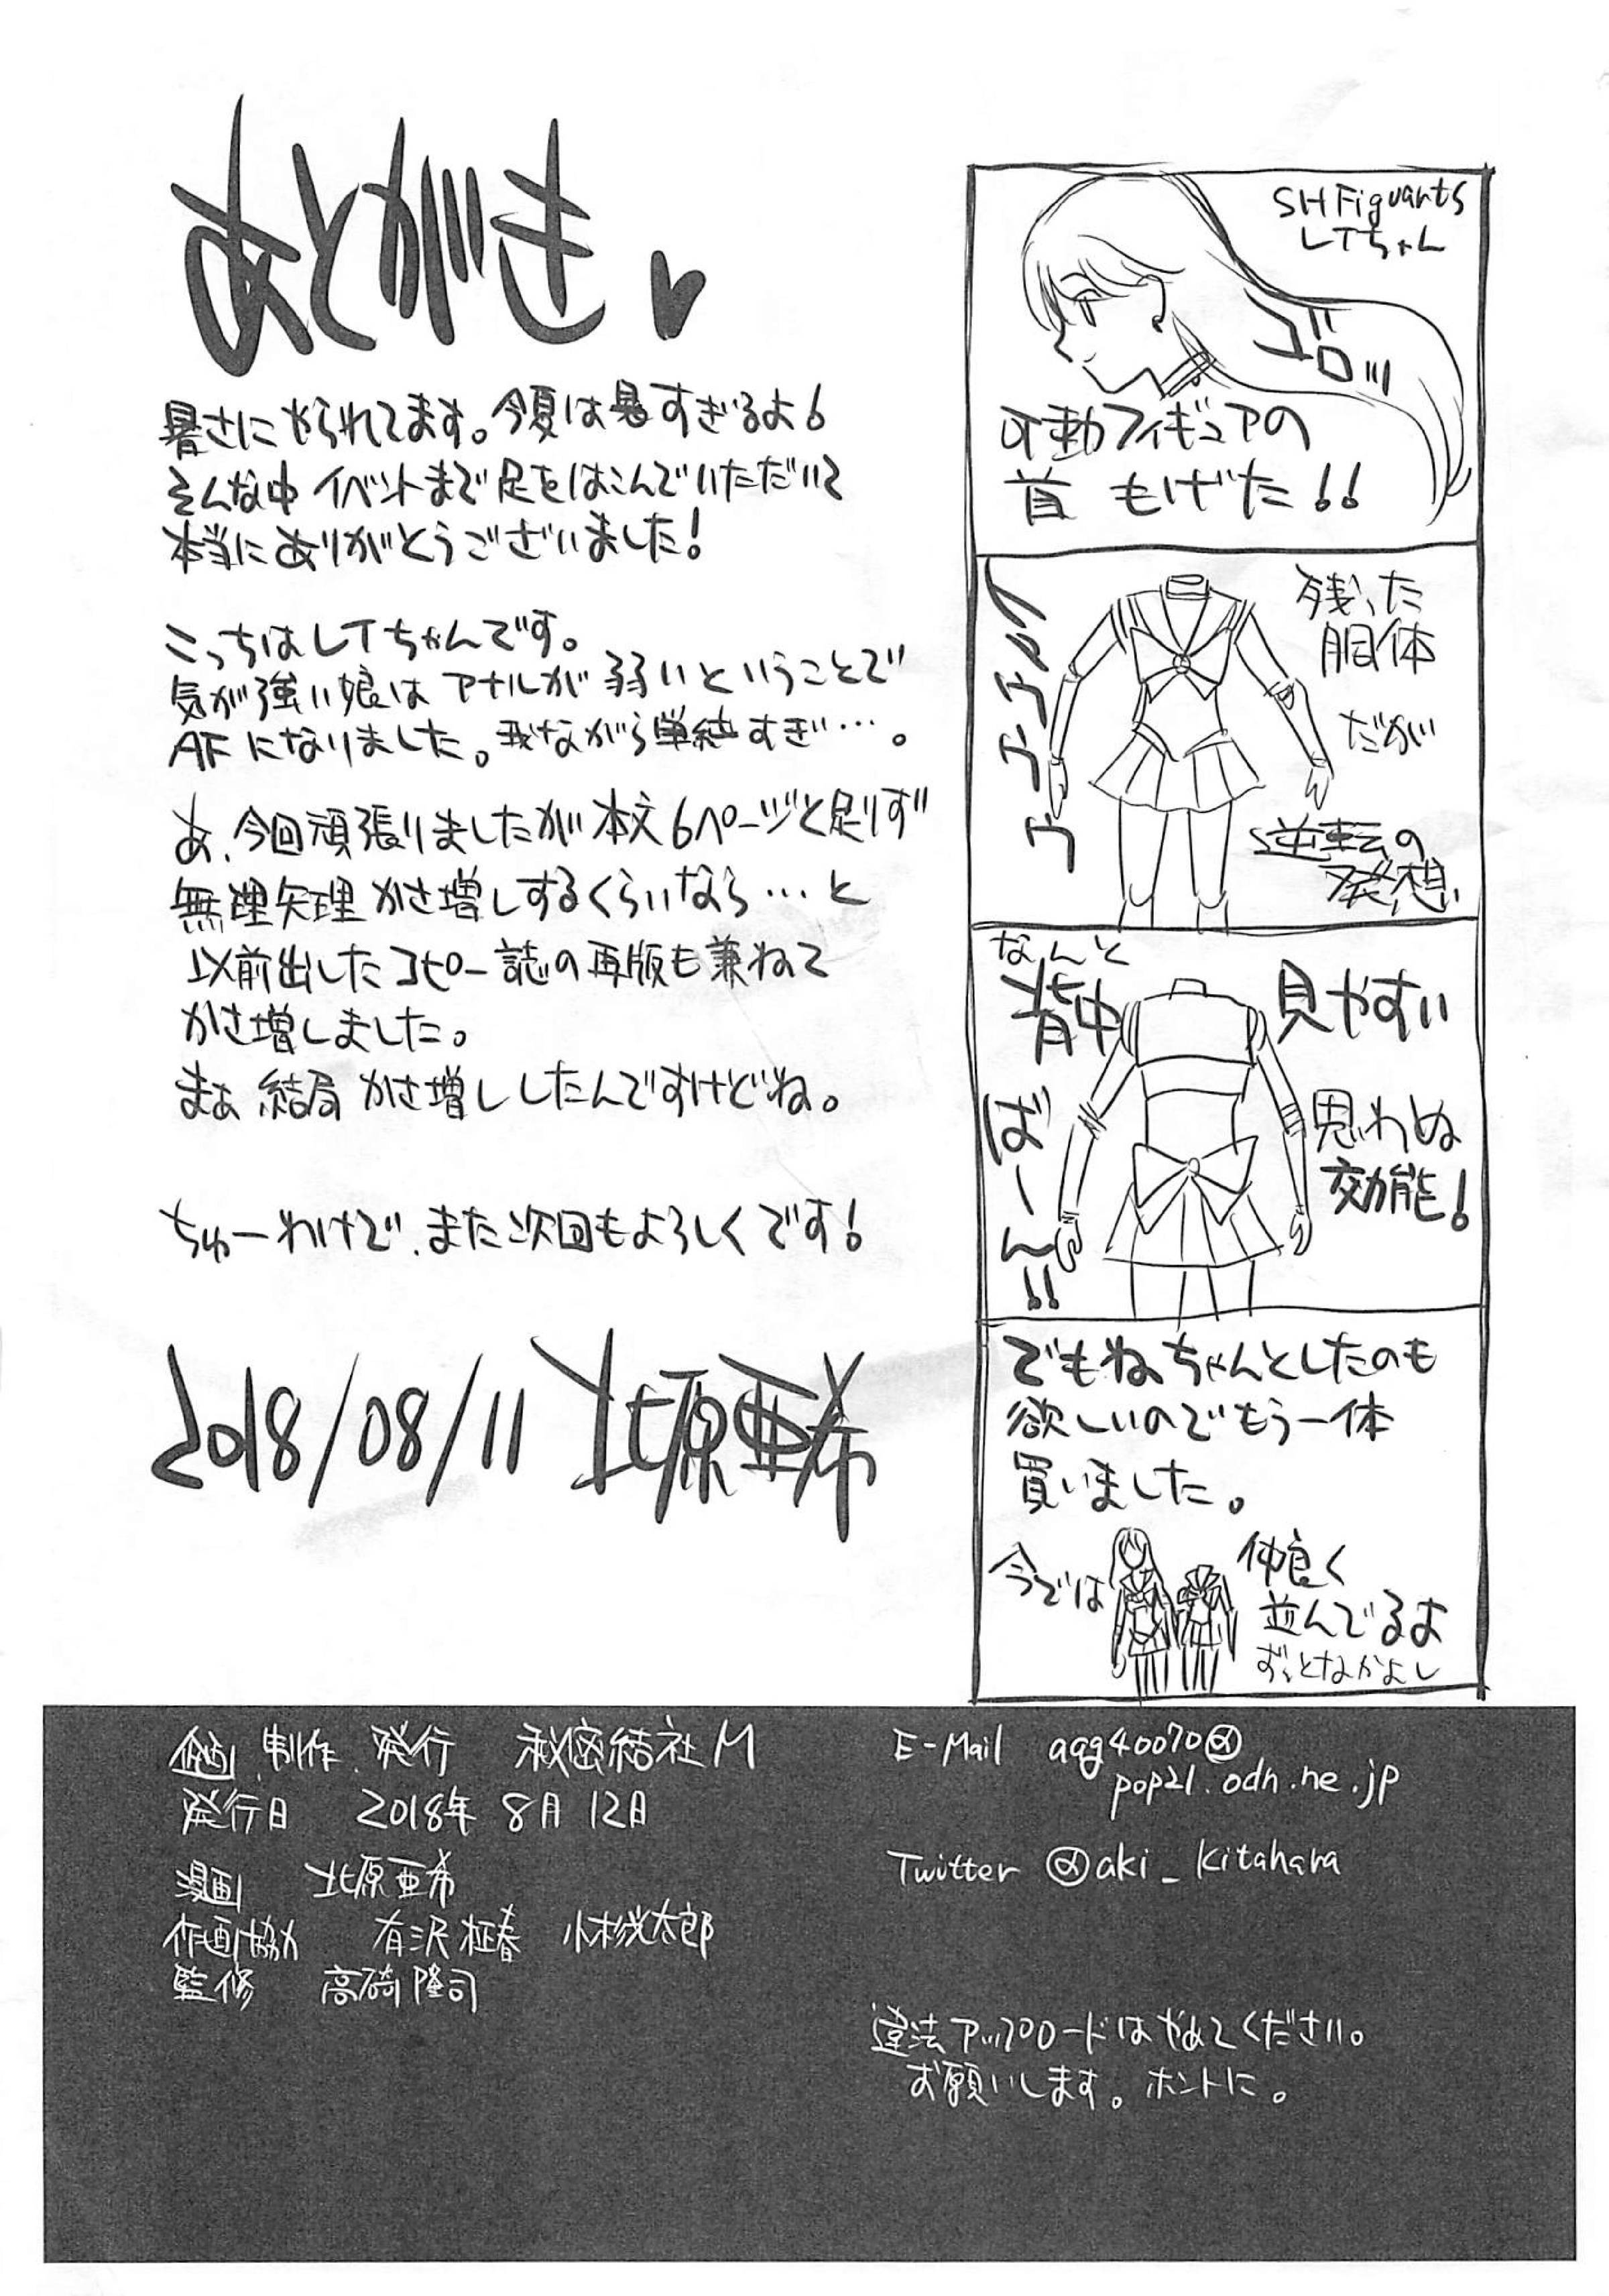 あとがき♥
暑さにやられてます。今夏は暑すぎるよ!
そんな中イベントまで足をはこんでいただいて
本当にありがとうございました!
こっちはレイちゃんです。
気が強い娘はアナルが弱いということで
AFになりました。我ながら単純すぎ…。
あ、今回頑張りましたが本文6ページと足りず
無理矢理かさ増しするくらいなら…と
以前出したコピー誌の再版も兼ねて
かさ増しました。
まぁ結局かさ増ししたんですけどね。
ちゅーわけで、また次回もよろしくです!
2018/08/11 北原亜希
SHFiguarts
レイちゃん
ゴロッ
可動フィギュアの
首 もげた!!
残った
胴体
だが
逆転の
発想、
なんと
背中
見やすい
ばーん!!
思わぬ
効能!
でもねちゃんとしたのも
欲しいのでもう一体
買いました。
今では
仲良く
並んでるよ
ずっとなかよし
企画、制作、発行 秘密結社M
発行日 2018年 8月 12日
漫画 北原亜希
作画協力 有沢柾春 小杉光太郎
監修 高碕隆司
E-Mail agg40070@
pop21.odn.ne.jp
Twitter @aki_kitahara
違法アップロードはやめてください。
お願いします。ホントに。